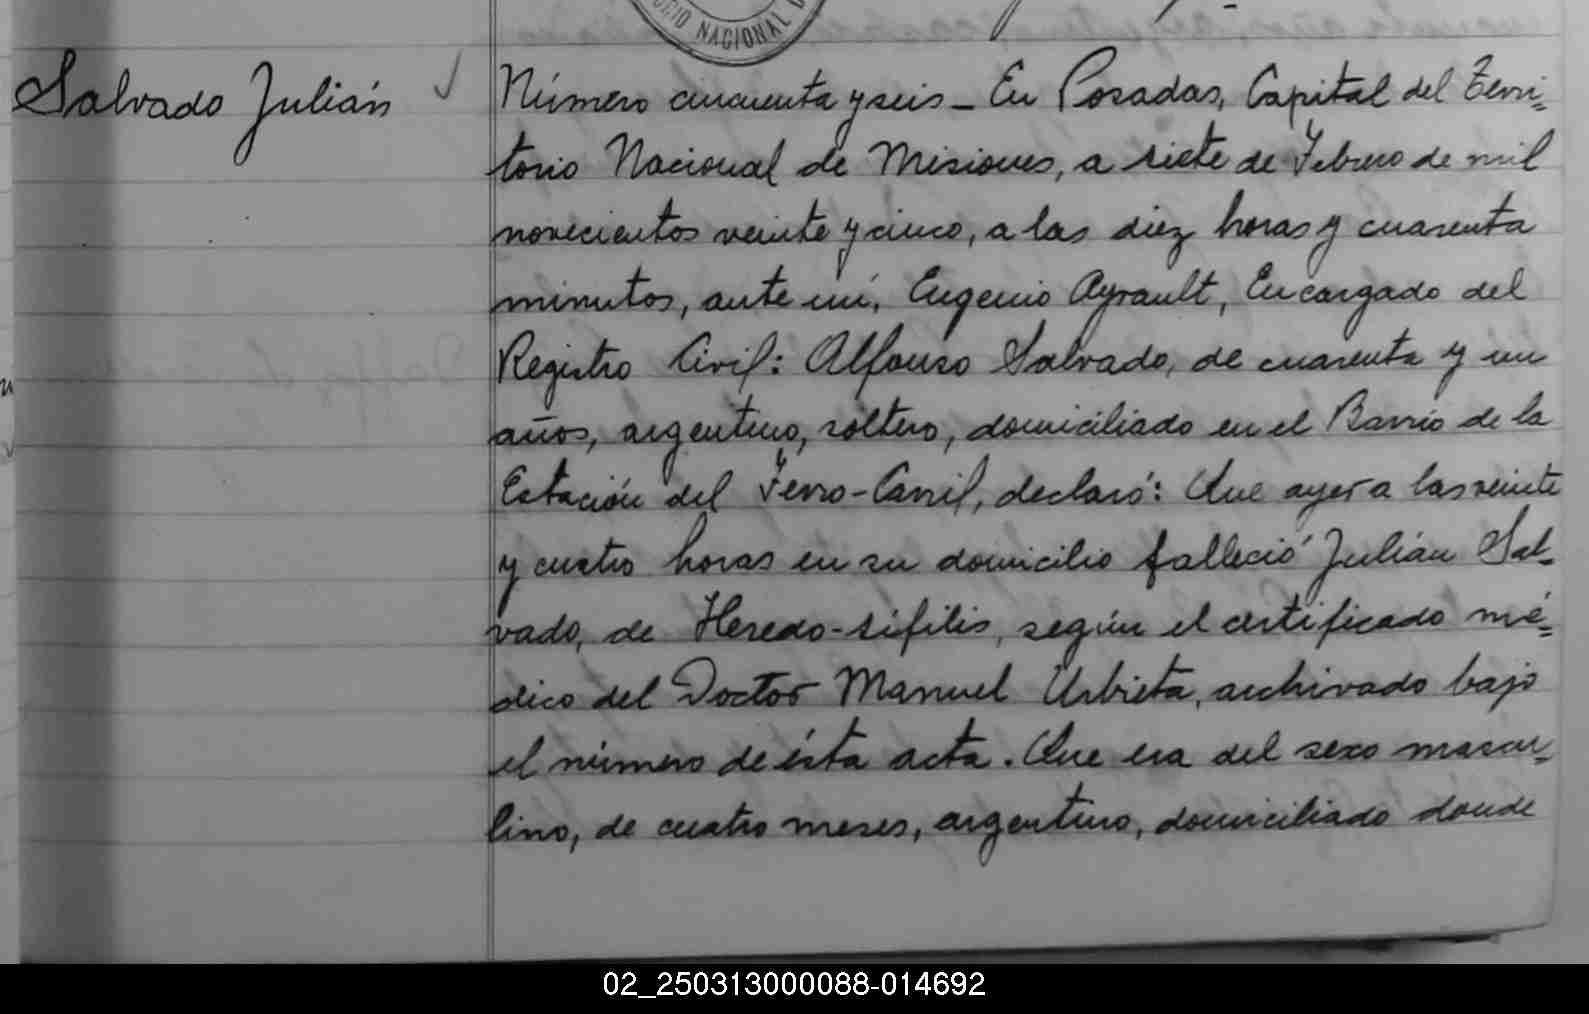 CIO NACIONAL D
Salvado Julián
Número cincuenta y seis_ En Posadas, Capital del Terri=
torio Nacional de Misiones, a siete de Febrero de mil
novecientos veinte y cinco, a las diez horas y cuarenta
minutos, ante mí, Eugenio Ayrault, Encargado del
Registro Civil: Alfonso Salvado, de cuarenta y un
años, argentino, soltero, domiciliado en el Barrio de la
Estación del Ferro-Carril, declaró: Que ayer a las veinte
y cuatro horas en su domicilio falleció Julián Sal=
vado, de Heredo-sífilis, según el certificado mé=
dico del Doctor Manuel Urbieta, archivado bajo
el número de ésta acta. Que era del sexo mascu=
lino, de cuatro meses, argentino, domiciliado donde
02_250313000088-014692